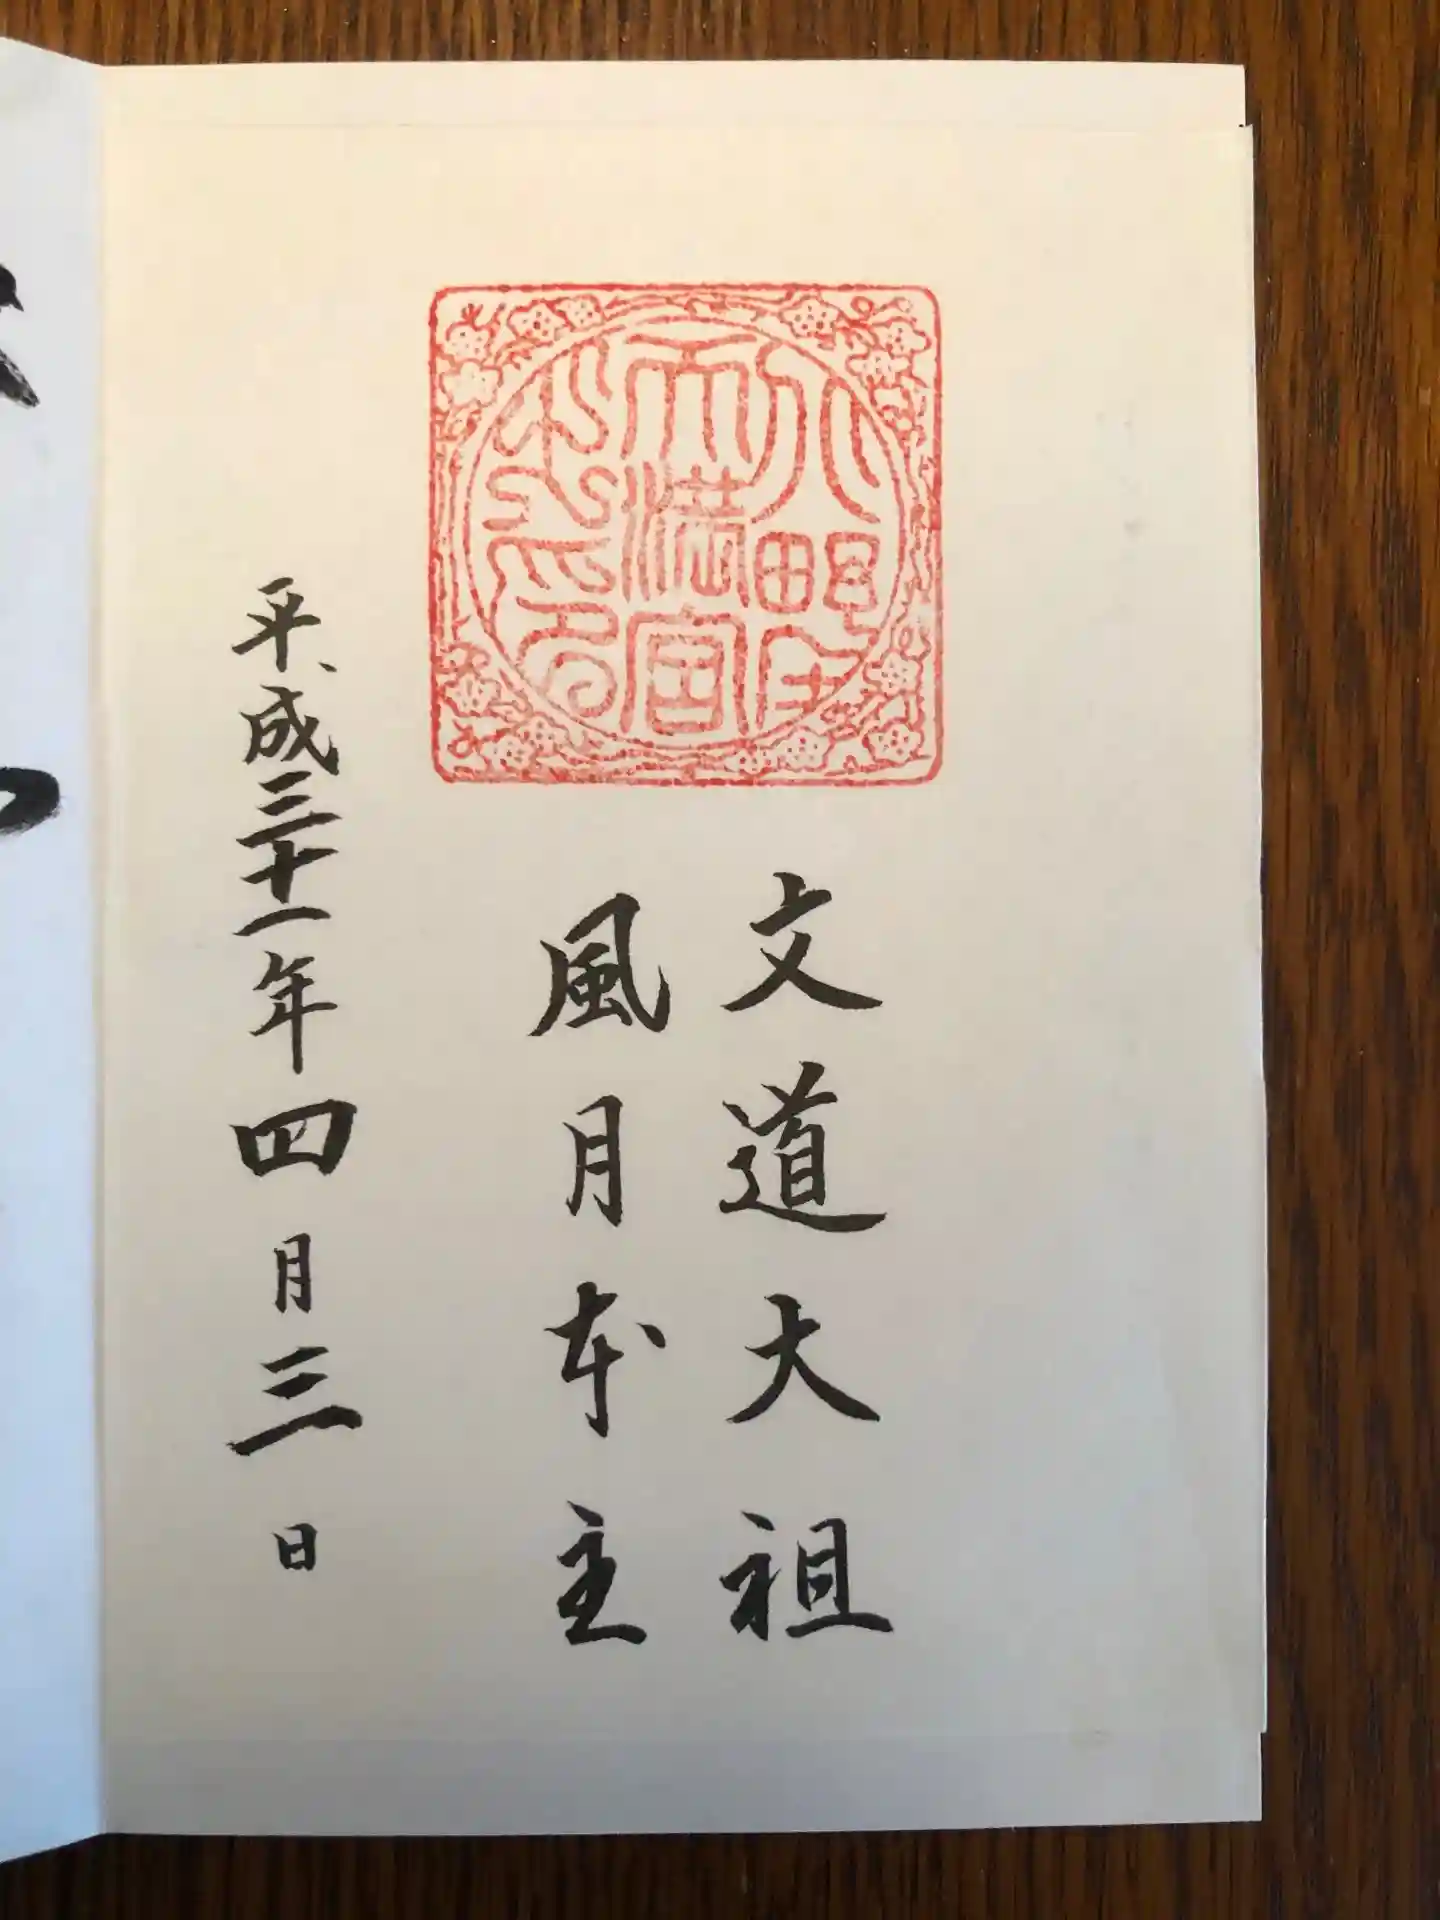 天満宮
文道大祖
風月本主
平成三十一年四月三日